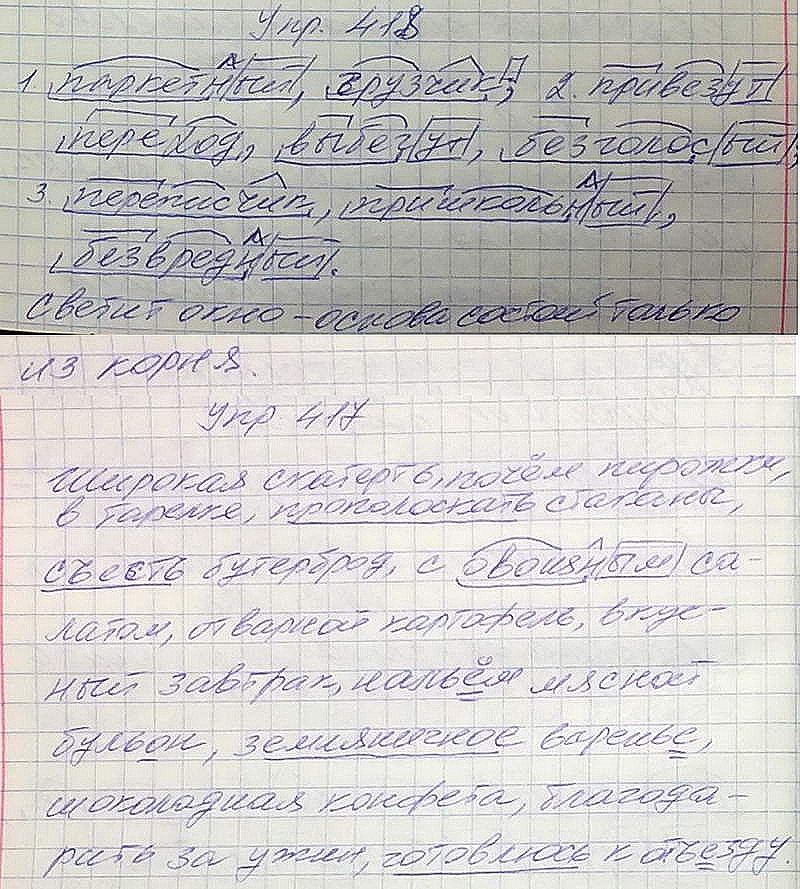 Упр. 418
1. паркетный, грузчик, 2. привезут
переход, выбегут, безголосый,
3. переписчик, пришкольный,
безвредный.
Светит окно – основа состоит только
из корня.
Упр 417
Широкая скатерть, почём пирожки,
в тарелке, прополоскать стаканы,
съесть бутерброд, с овощным са-
латом, отварной картофель, вкус-
ный завтрак, нальём мясной
бульон, земляничное варенье,
шоколадная конфета, благода-
рить за ужин, готовлюсь к отъезду.